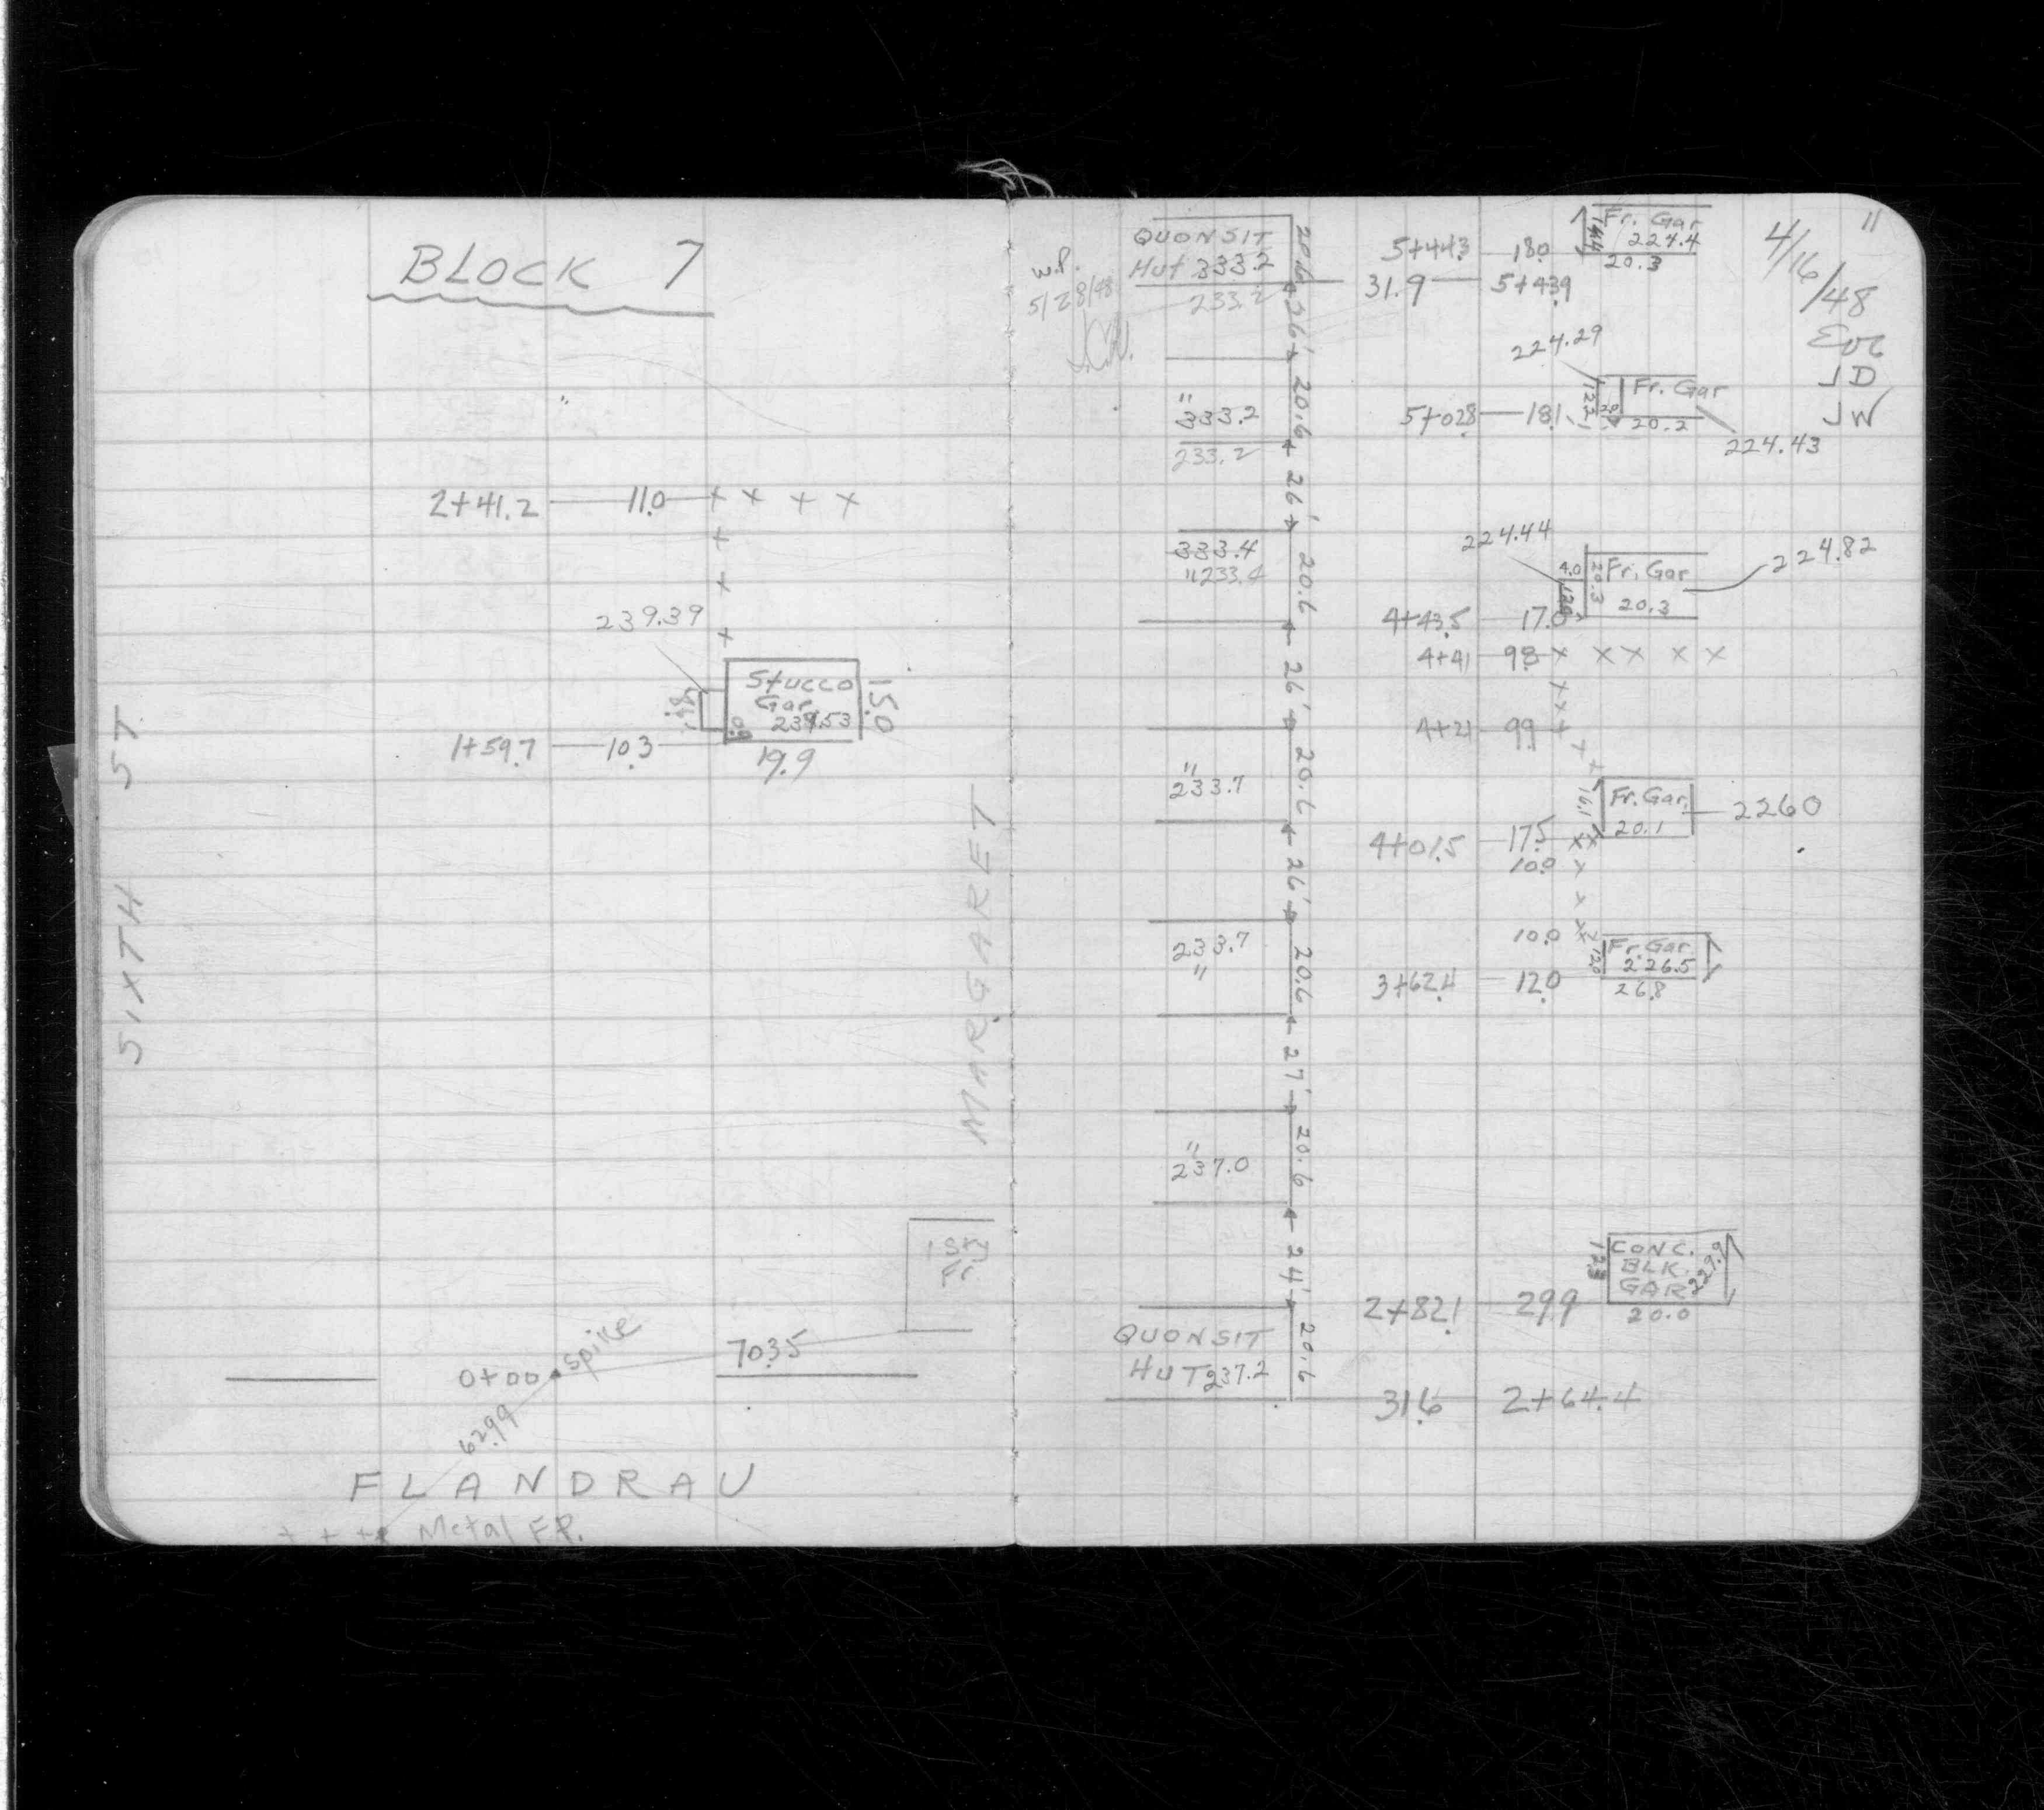 BLOCK 7
2+41.2 11.0 + x + x
+
+
239.39 +
Stucco
Gar
239.53
15.0
1+59.7 10.3
19.9
SIXTH ST
MARGARET
1 Sty
Fr
0+00 spike 703.5
629.9
FLANDRAU
+ + + Metal F.P.
11
4/16/48
JD
JW
W.P.
5/28/48
QUONSIT
Hut 333.2
233.2
20.6
26'
"
333.2
233.2
20.6
26'
333.4
"233.4
20.6
26'
"
233.7
20.6
26'
233.7
"
20.6
27'
"
237.0
20.6
24'
QUONSIT
HUT 237.2
20.6
5+44.3 18.0 14.4 Fr. Gar
224.4
20.3
31.9 5+43.9
224.29
5+02.8 18.1 Fr. Gar
20.2
224.43
224.44
4.0 20.3 Fr. Gar 224.82
20.3
4+43.5 17.0
4+41 9.8 x x x x x
4+21 9.9 +
16.1 Fr. Gar. 226.0
20.1
4+01.5 17.5 x x
10.0 x
10.0 x x
12.0 Fr. Gar
226.5
3+62.4 12.0 26.8
12.3 CONC.
BLK.
GAR 229.9
2+82.1 29.9 20.0
31.6 2+64.4